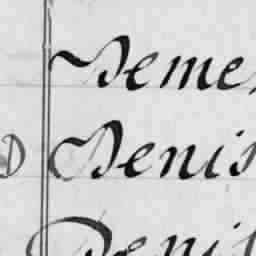 Deme
D Denis
Denis